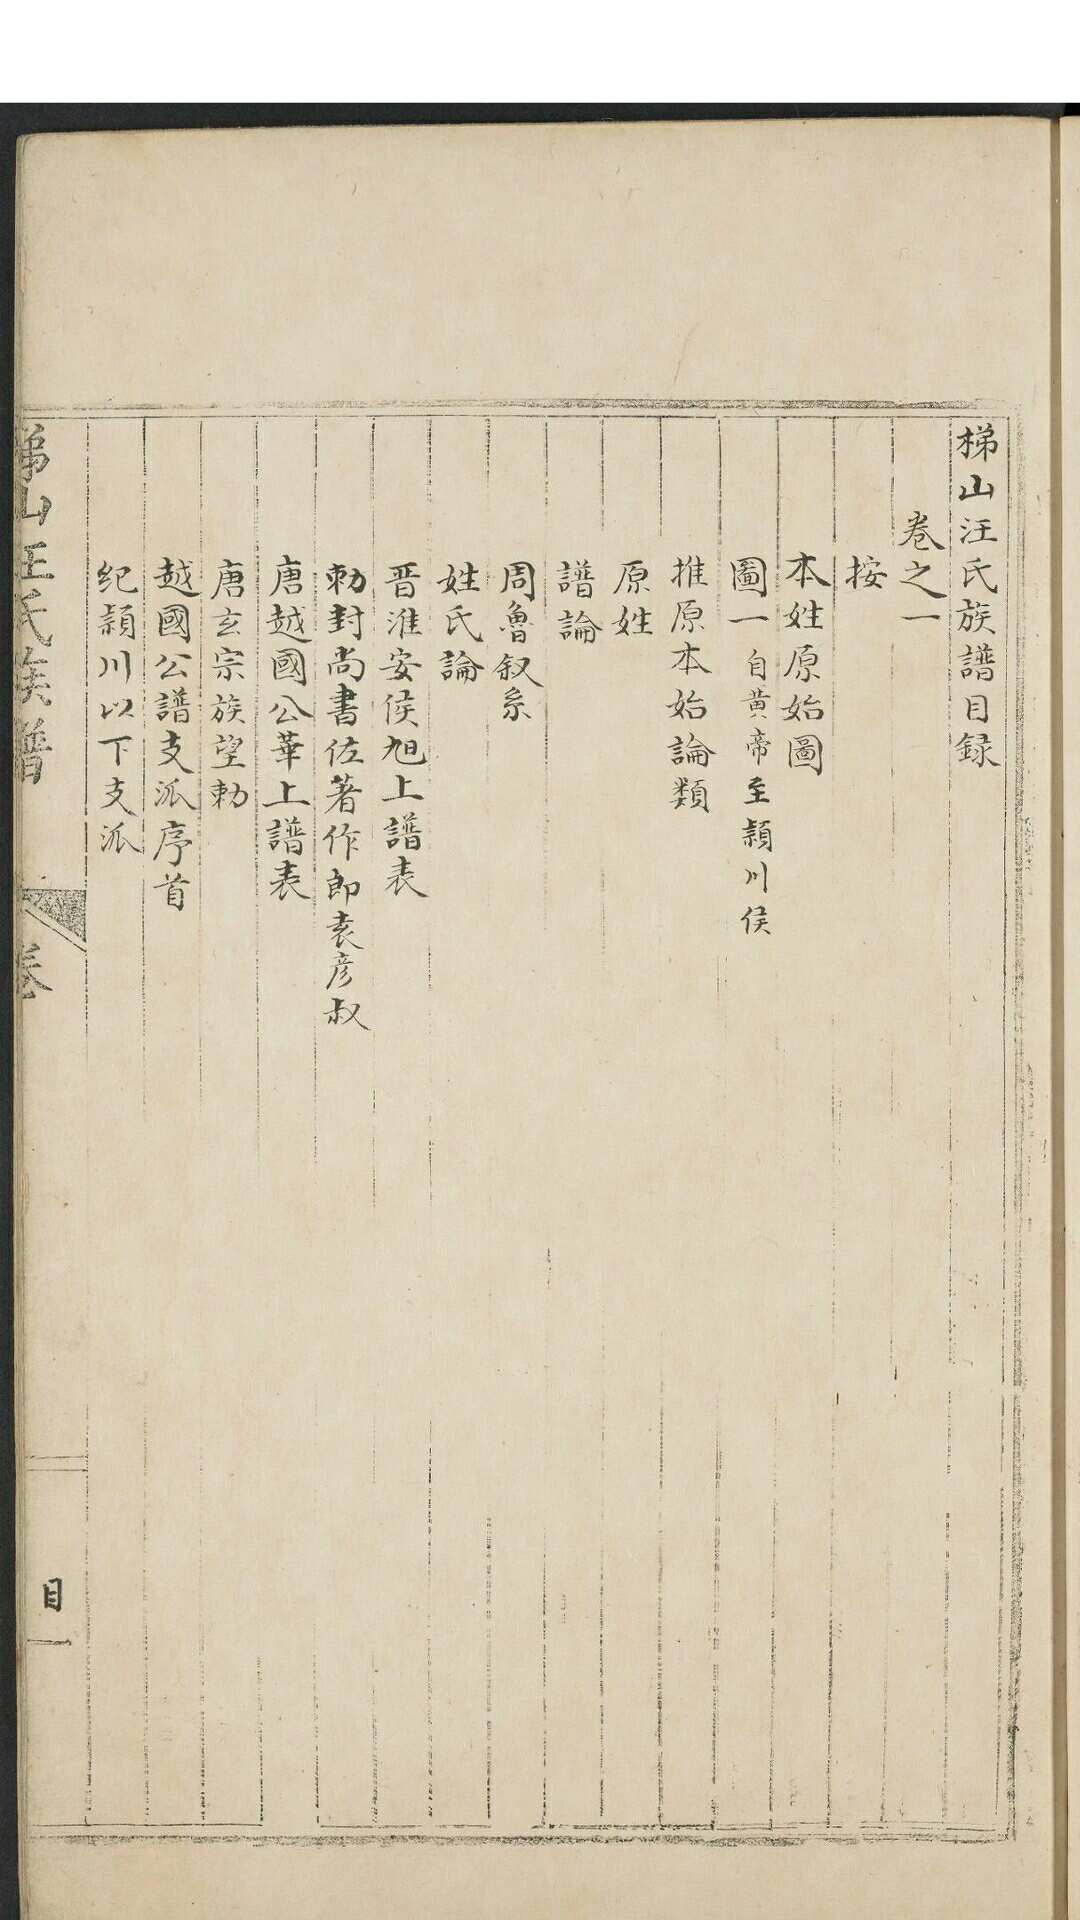 梯山汪氏族譜目録
卷之一
按
本姓原始圖
圖一 自黄帝至潁川侯
推原本始論類
原姓
譜論
周魯叙系
姓氏論
晋淮安侯旭上譜表
勅封尚書佐著作郎袁彦叔
唐越國公華上譜表
唐玄宗族望勅
越國公譜支派序首
紀潁川以下支派
梯山汪氏族譜
卷
目一